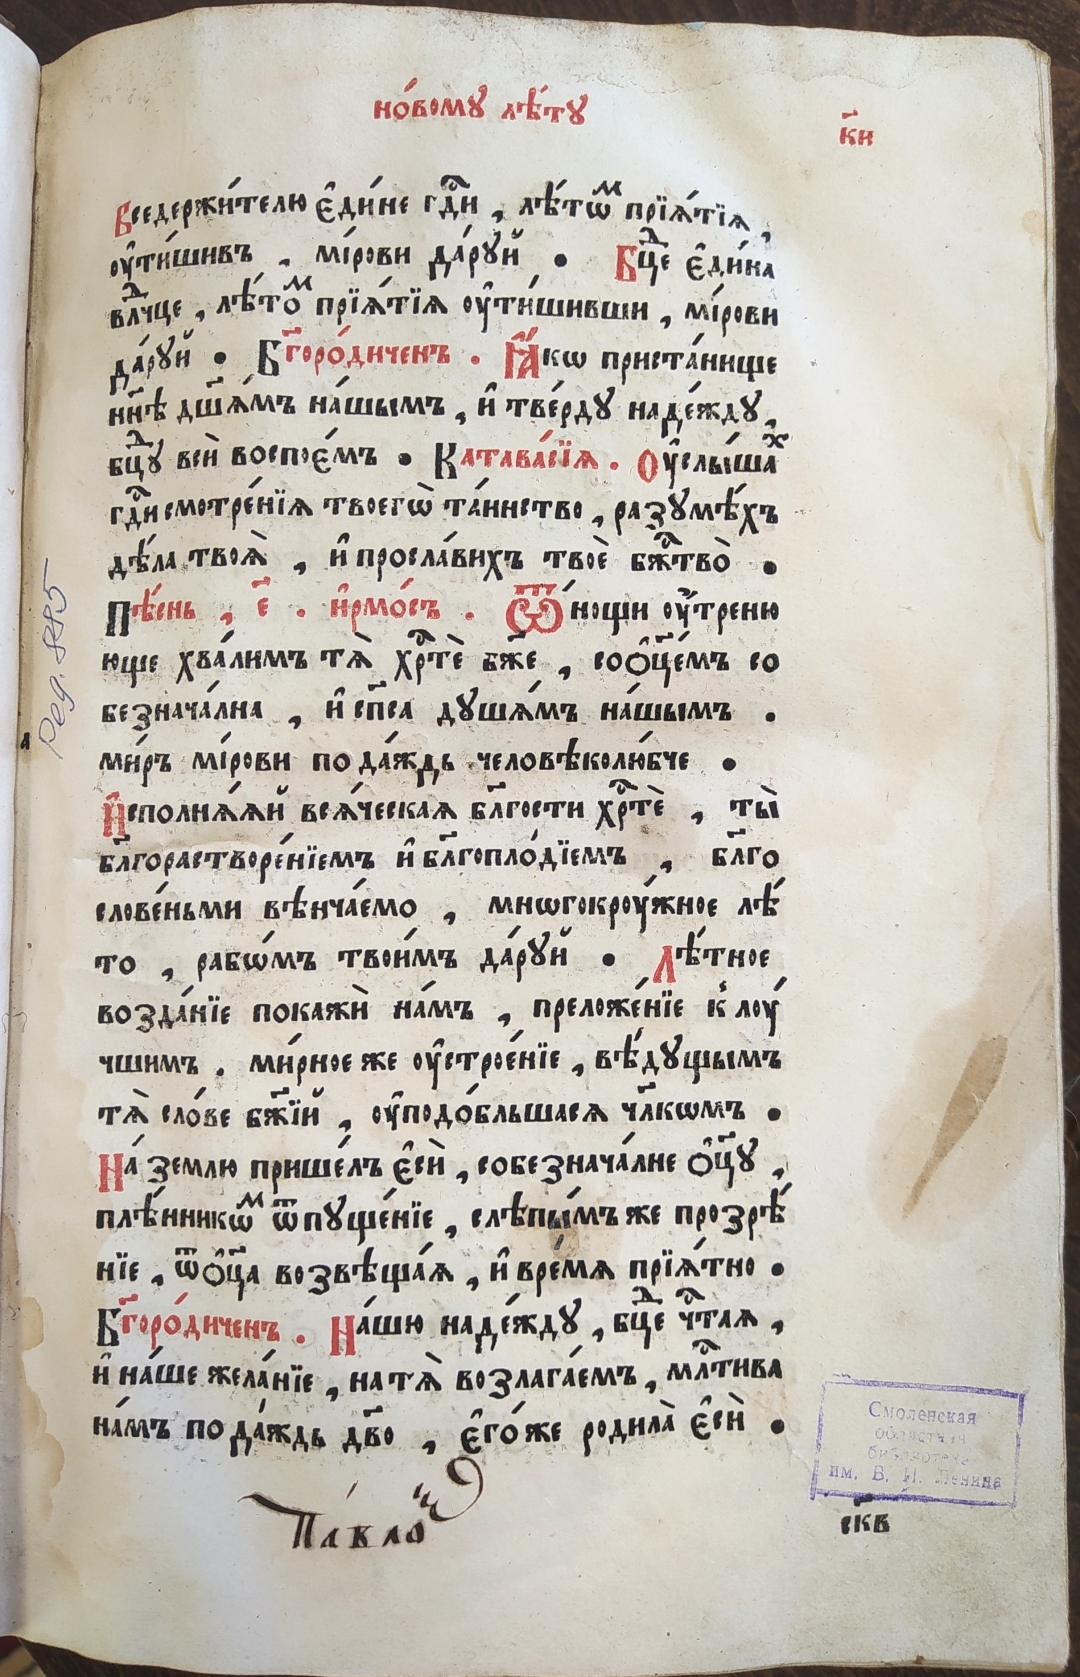 но́вому лѣ́ту
к҃и
Вседержи́телю є҆ди́не гдⷭ҇и , лѣ́тѡⷨ прїѧ́тїѧ ,
ᲂу҆ти́шивъ , мі́рови да́рꙋй • Бцⷣе є҆ди́на
влⷣчце , лѣ́тоⷨ прїѧ́тїѧ ᲂу҆ти́шивши , мі́рови
да́рꙋй • Бг҃оро́диченъ . Ꙗ҆́кѡ приста́нище
нн҃ѣ дш҃ѧ́мъ на́шымъ , и҆ тве́рдꙋ наде́ждꙋ ,
бцⷣꙋ всѝ воспое́мъ • Катава́сїѧ . Оу҆слы́шаⷯ
гдⷭ҇и смотре́нїѧ твоегѡ̀ та́инство , разꙋмѣ́хъ
дѣ́ла твоѧ̀ , и҆ просла́вихъ твоѐ бжⷭ҇тво̀ •
Пѣ́снь , є҃ . и҆рмо́съ . Ѿ но́щи ᲂу҆́треню
юще хва́лимъ тѧ̀ хрⷭ҇тѐ бж҃е , со ѻ҆ц҃е́мъ со
безнача́лна , и҆ сп҃са дꙋша́мъ на́шымъ .
ми́ръ мі́рови пода́ждь человѣколю́бче •
И҆сполнѧ́ѧй всѧ́ческаѧ бл҃гости хрⷭ҇тѐ , ты̀
бл҃горастворе́нїемъ и҆ бл҃гопло́дїемъ , бл҃го
слове́ньми вѣнча́емо , мнѡгокрᲂу́жное лѣ́
то , рабѡ́мъ твои́мъ да́рꙋй • Лѣ́тное
возда́нїе покажѝ на́мъ , преложе́нїе к̾ лᲂу́
чшимъ . ми́рное же ᲂу҆строе́нїе , вѣ́дꙋщымъ
тѧ̀ сло́ве бж҃їй , ᲂу҆подо́бльшасѧ чл҃кѡмъ •
На́ землю прише́лъ є҆сѝ , собезнача́лне ѻ҆ц҃ꙋ ,
плѣ́нникѡⷨ ѿпꙋще́нїе , слѣпы́мъ же прозрѣ́
нїе , ѿ ѻ҆ц҃а возвѣща́ѧ , и҆ вре́мѧ прїѧ́тно •
Бг҃оро́диченъ . На́шю наде́ждꙋ , бцⷣе чⷭ҇таѧ ,
и҆ на́ше жела́нїе , на тѧ̀ возлага́емъ , млⷭ҇тива
на́мъ пода́ждь дв҃о , є҆го́же родила̀ є҆сѝ •
Па́вло
ск҃в
Рег. 885
Смоленская
областная
библиотека
им. В. И. Ленина